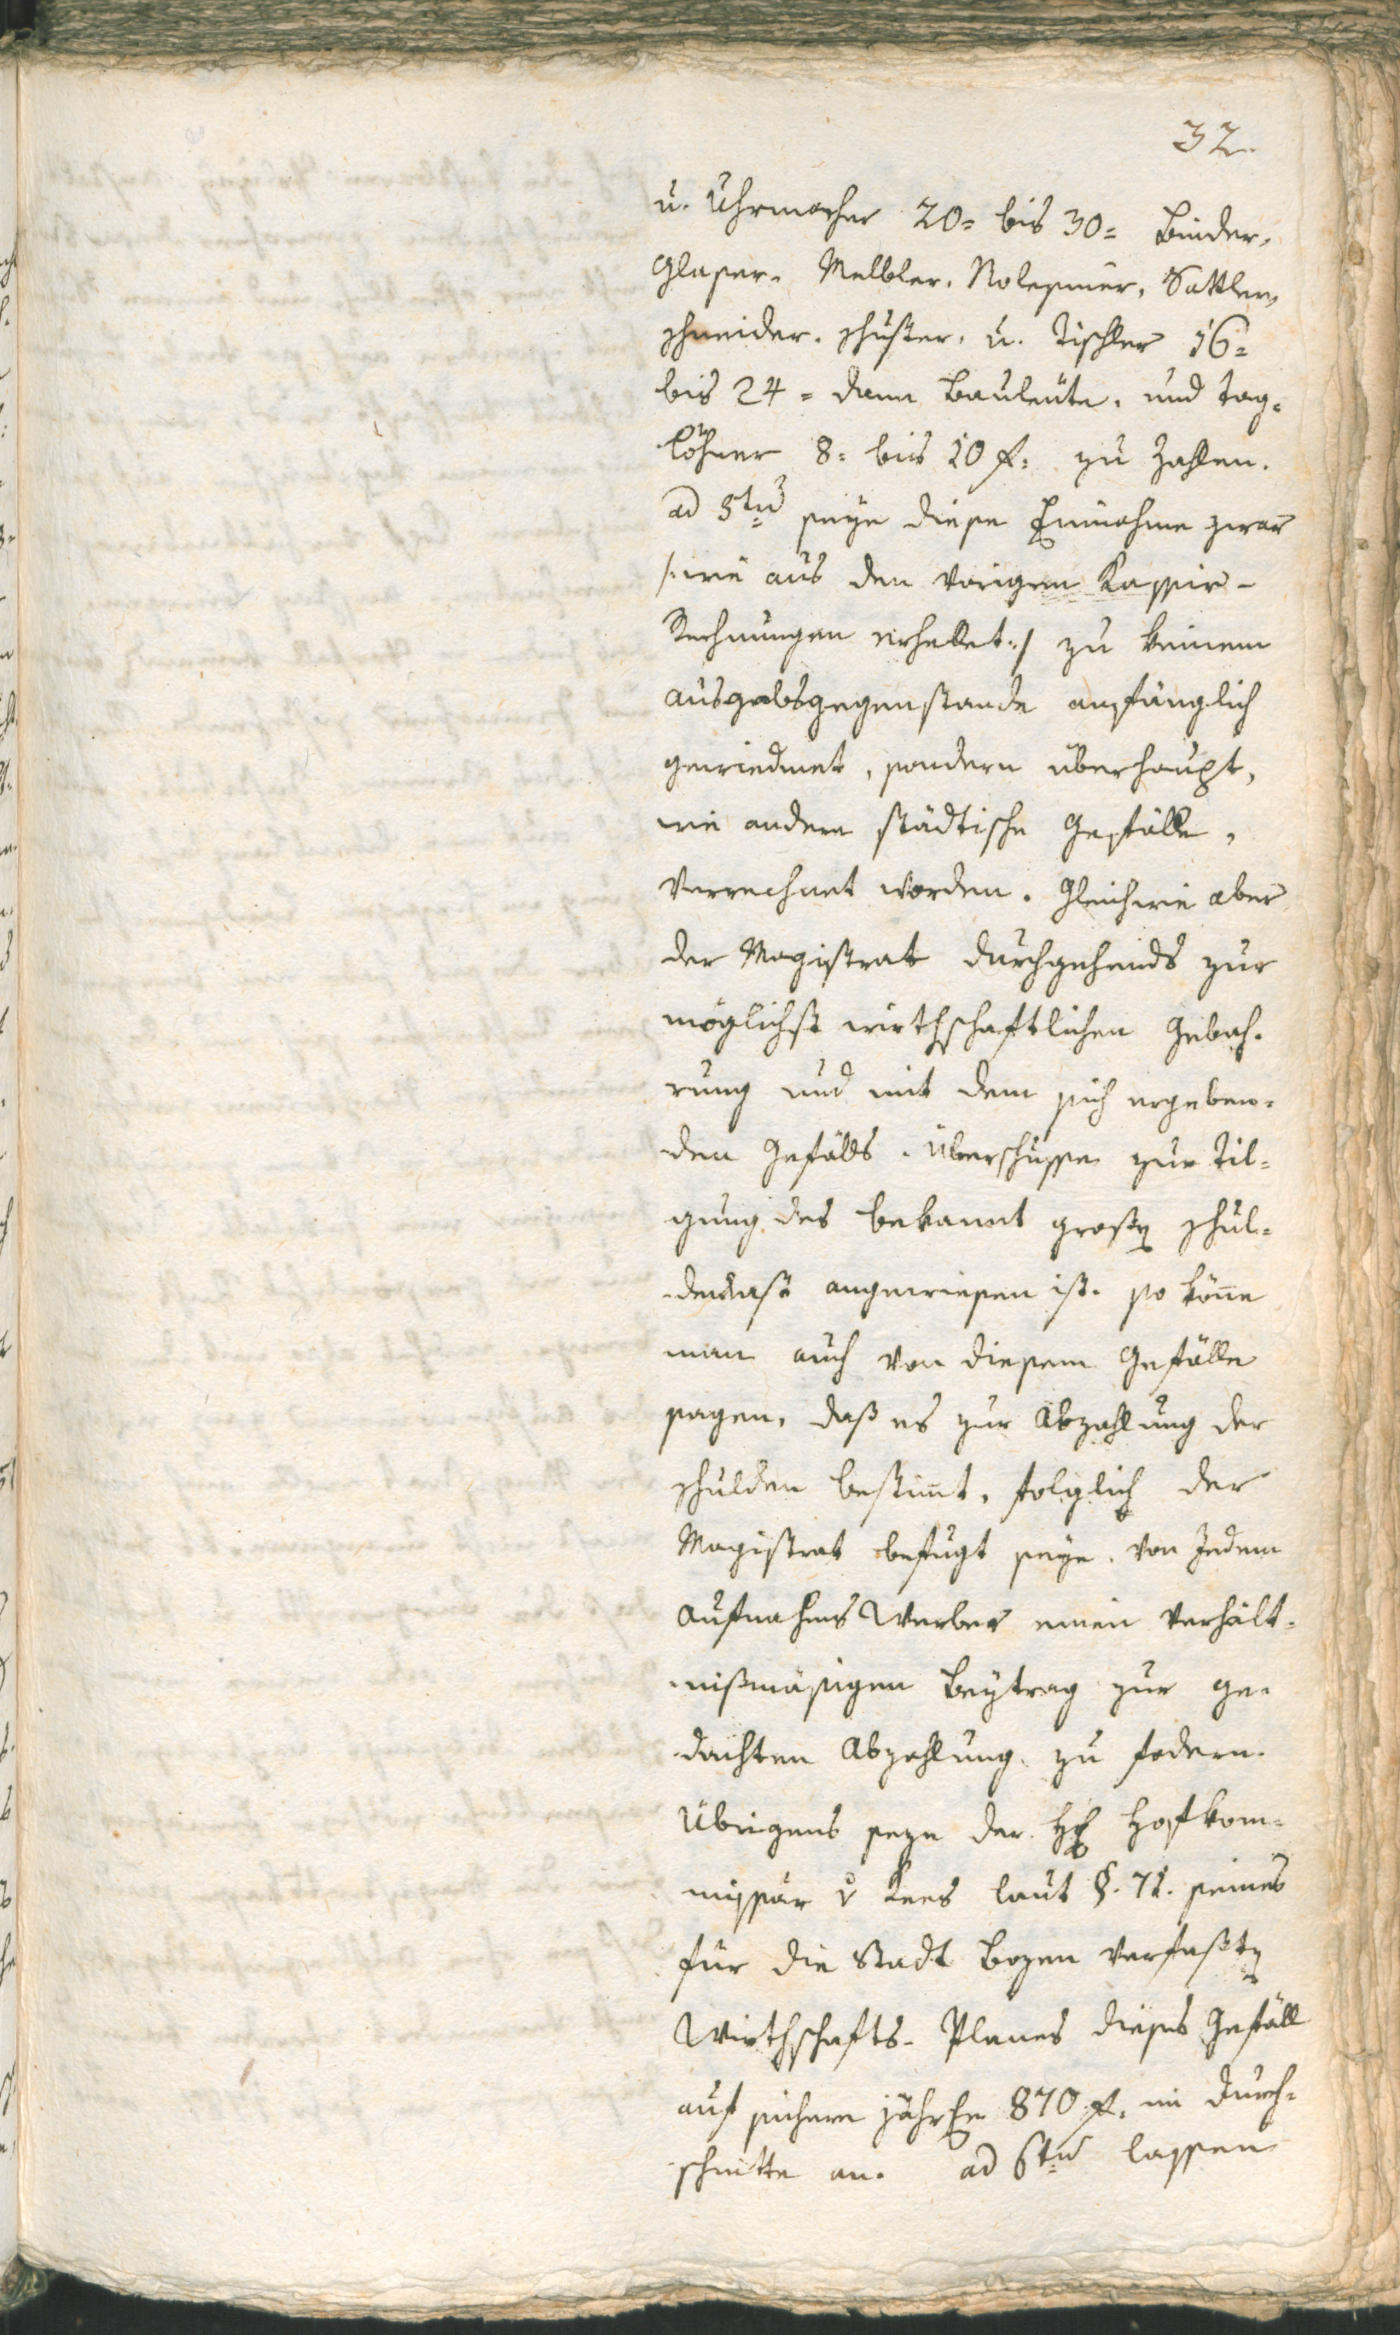 32.
u. Uhrmacher 20= bis 30= Binder,
Glaser, Melbler, Nolesiner, Sattler,
Schneider, Schuster, u. Tischler 16=
bis 24= dann Bauleute, und Tag=
löhner 8= bis 10 f: zu zahlen.
ad 5tu̅ seye diese Einnahme zwar
/: wie aus den vorigen Kassier-
Rechnungen erhellet :/ zu keinem
Ausgabsgegenstande anfänglich
gewiedmet, sondern überhaupt,
wie andere städtische Gefälle,
verrechnet worden. Gleichwie aber
der Magistrat durchgehends zur
möglichst wirthschaftlichen Gebah=
rung und mit dem sich ergeben=
den Gefälls-Überschusse zur Til=
gung des bekannt großen Schul=
denlast angewiesen ist. so könne
man auch von diesem Gefälle
sagen, daß es zur Abzahlung der
Schulden bestimt, folglich der
Magistrat befugt seye, von Jedem
Aufnahms Werber einen verhält=
nißmäsigen Beytrag zur ge=
dachten Abzahlung zu fodern.
Übrigens seze der H. Hofkom=
missär v Kees laut §. 71. seines
für die Stadt Bozen verfaßten
Wirthschafts-Planes dieses Gefäll
auf sichere jährle 870 f. im Durch=
schnitte an. ad 6tu̅ lassen